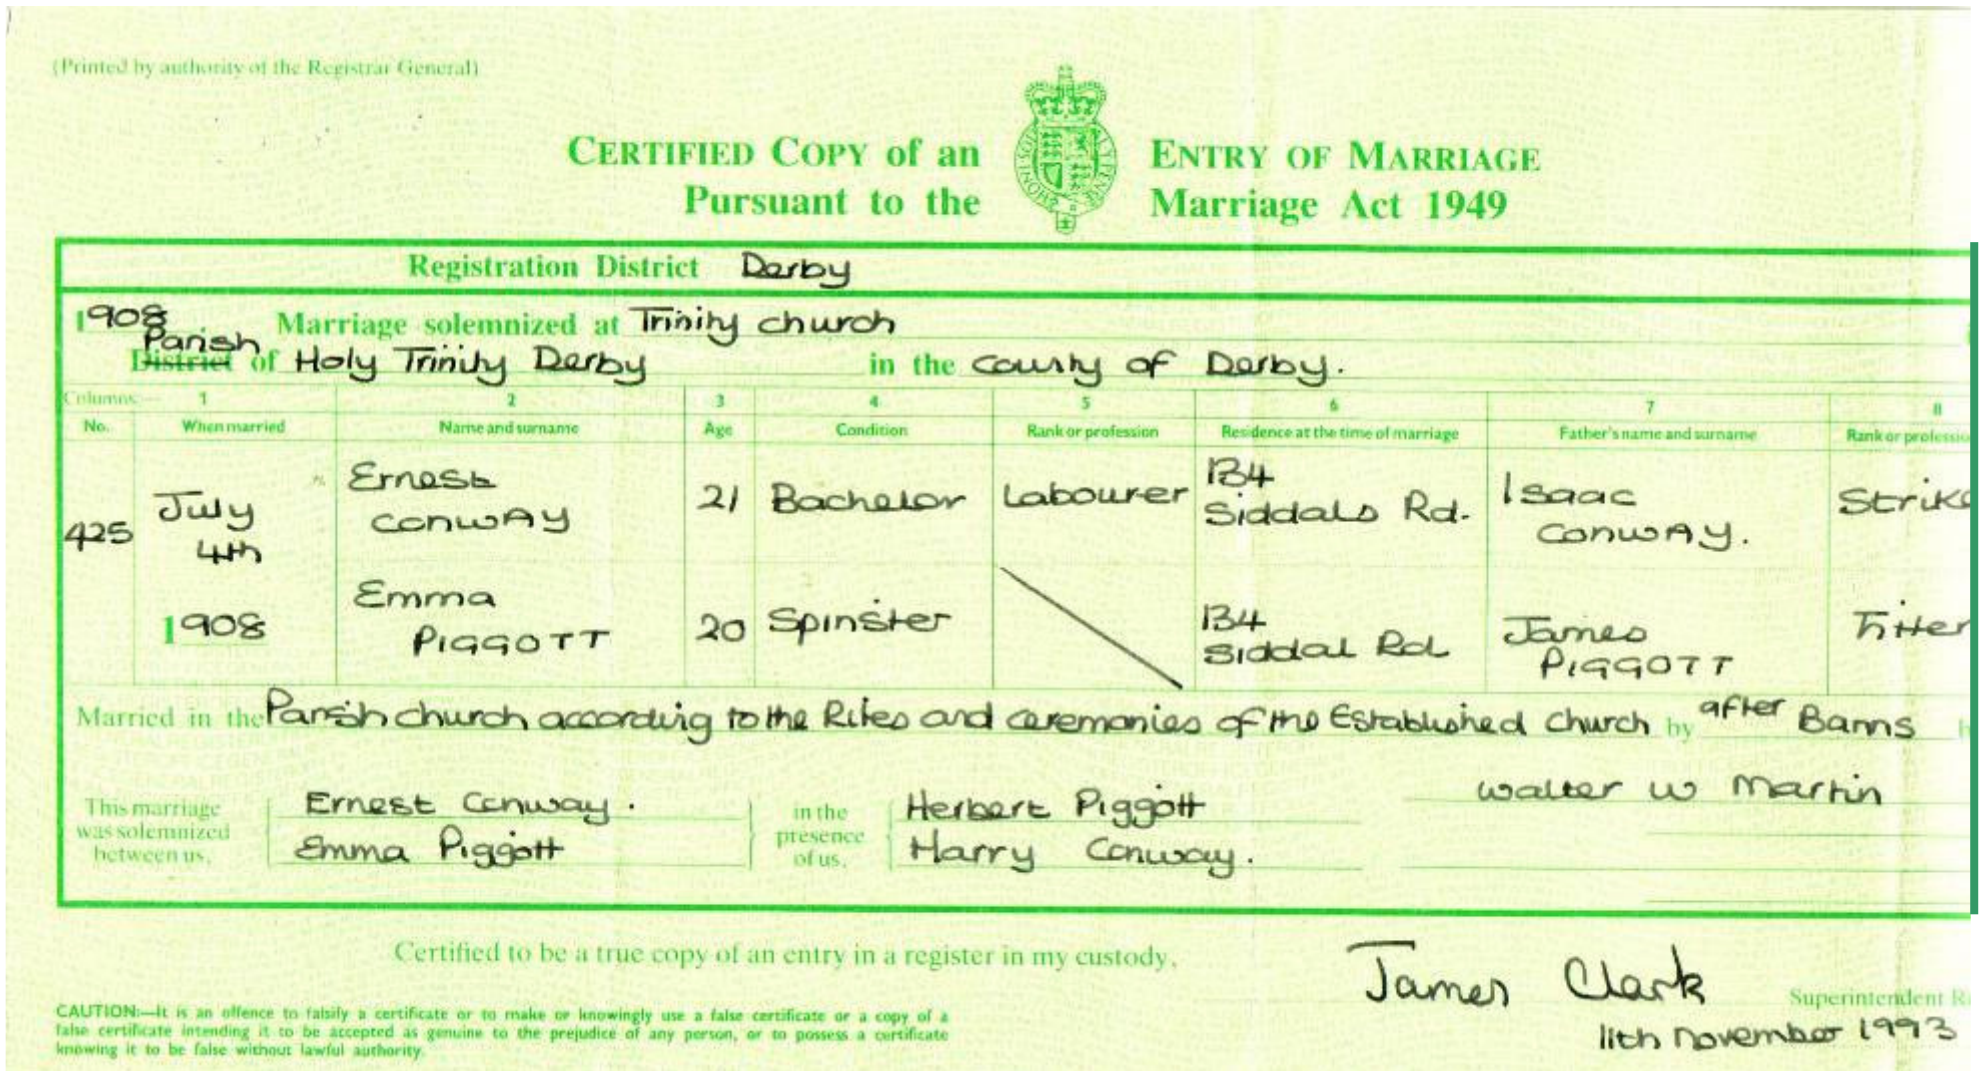 (Printed by authority of the Registrar General)
CERTIFIED COPY of an ENTRY OF MARRIAGE
Pursuant to the Marriage Act 1949
Registration District Derby
1908 Marriage solemnized at Trinity church
Parish
District of Holy Trinity Derby in the county of Derby.
Columns:— 1 2 3 4 5 6 7 8
No. When married Name and surname Age Condition Rank or profession Residence at the time of marriage Father's name and surname Rank or professio
425 July 4th 1908
Ernest CONWAY 21 Bachelor Labourer 134 Siddals Rd. Isaac CONWAY. Strike
Emma PIGGOTT 20 Spinster 134 Siddal Rd James PIGGOTT Fitter
Married in the Parish church according to the Rites and ceremonies of the Established Church by after Banns
This marriage was solemnized between us, Ernest Conway. Emma Piggott
in the presence of us, Herbert Piggott Harry Conway.
Walter W Martin
Certified to be a true copy of an entry in a register in my custody.
James Clark Superintendent R
11th November 1993
CAUTION:—It is an offence to falsify a certificate or to make or knowingly use a false certificate or a copy of a
false certificate intending it to be accepted as genuine to the prejudice of any person, or to possess a certificate
knowing it to be false without lawful authority.